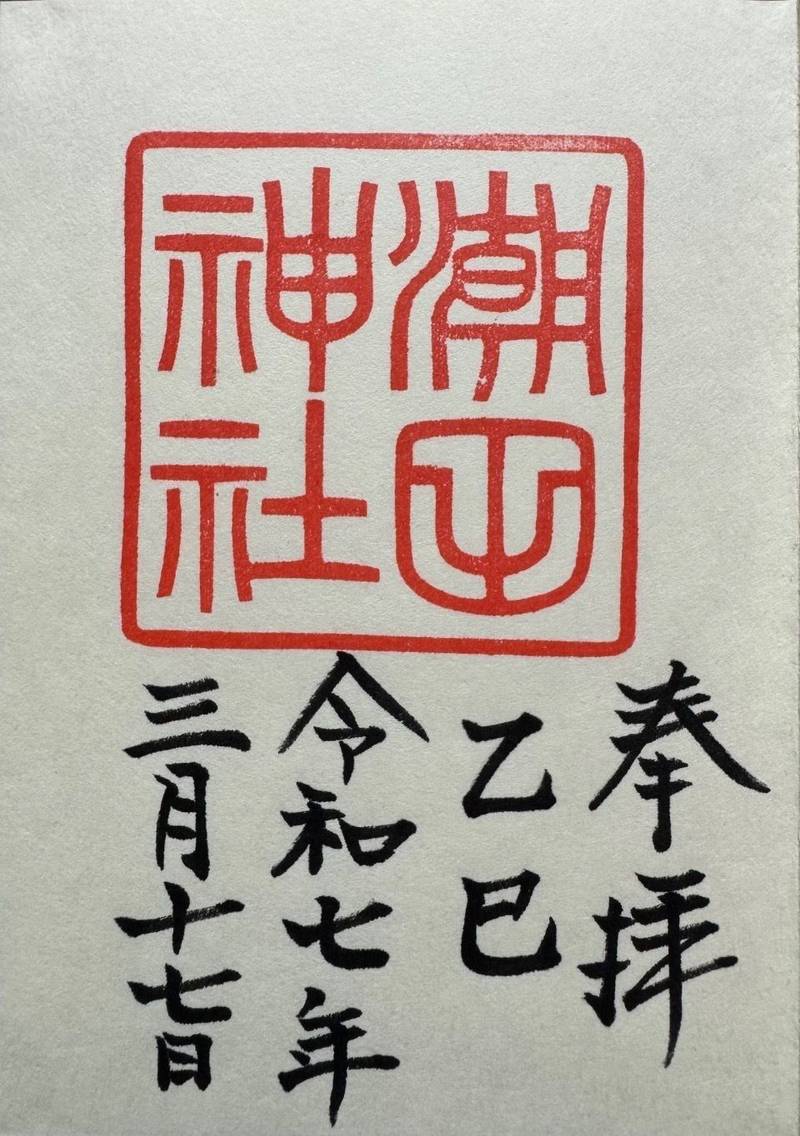 潮田
神社
奉拝
乙巳
令和七年
三月十七日